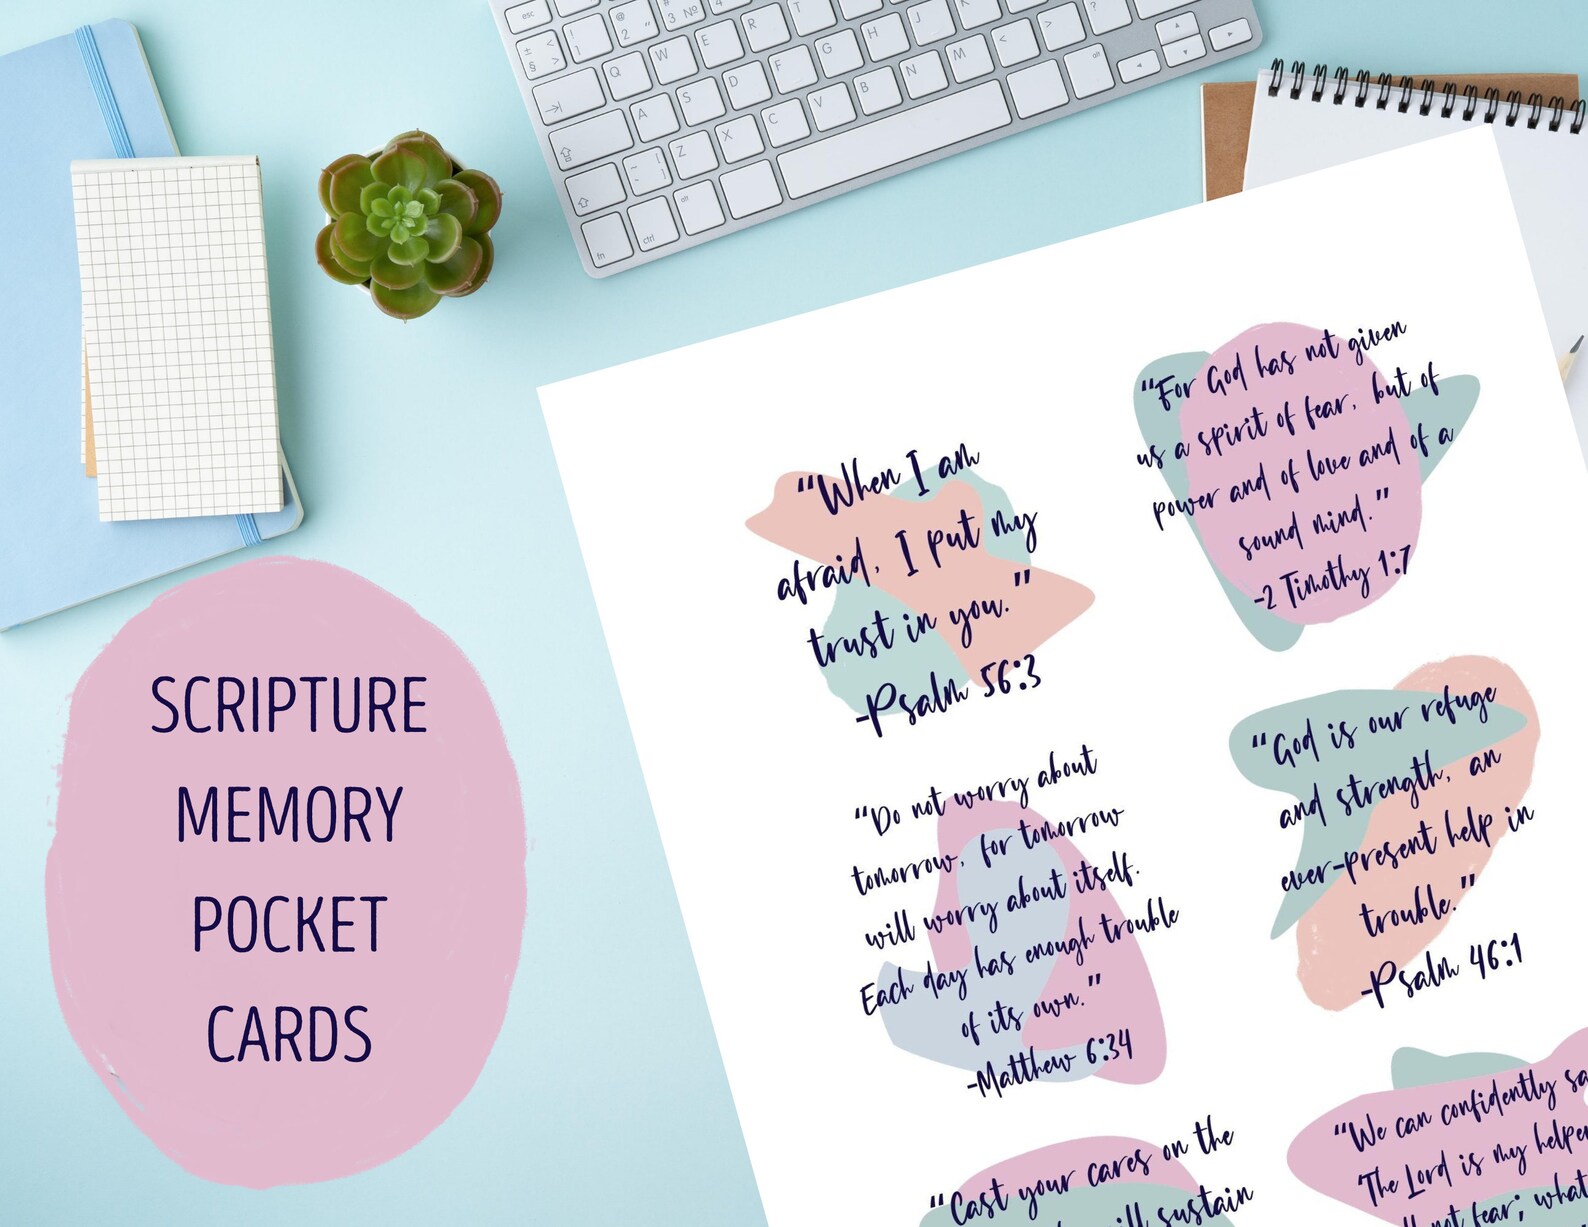 esc
! 1 @ 2 # 3 №
Q W E R T
A S D F G H J K L
Z X C V B N M < > ?
fn ctrl alt alt
SCRIPTURE
MEMORY
POCKET
CARDS
“When I am
afraid, I put my
trust in you.”
-Psalm 56:3
“For God has not given
us a spirit of fear, but of
power and of love and of a
sound mind.”
-2 Timothy 1:7
“Do not worry about
tomorrow, for tomorrow
will worry about itself.
Each day has enough trouble
of its own.”
-Matthew 6:34
“God is our refuge
and strength, an
ever-present help in
trouble.”
-Psalm 46:1
“Cast your cares on the
will sustain
“We can confidently
'The Lord is my
not fear; what